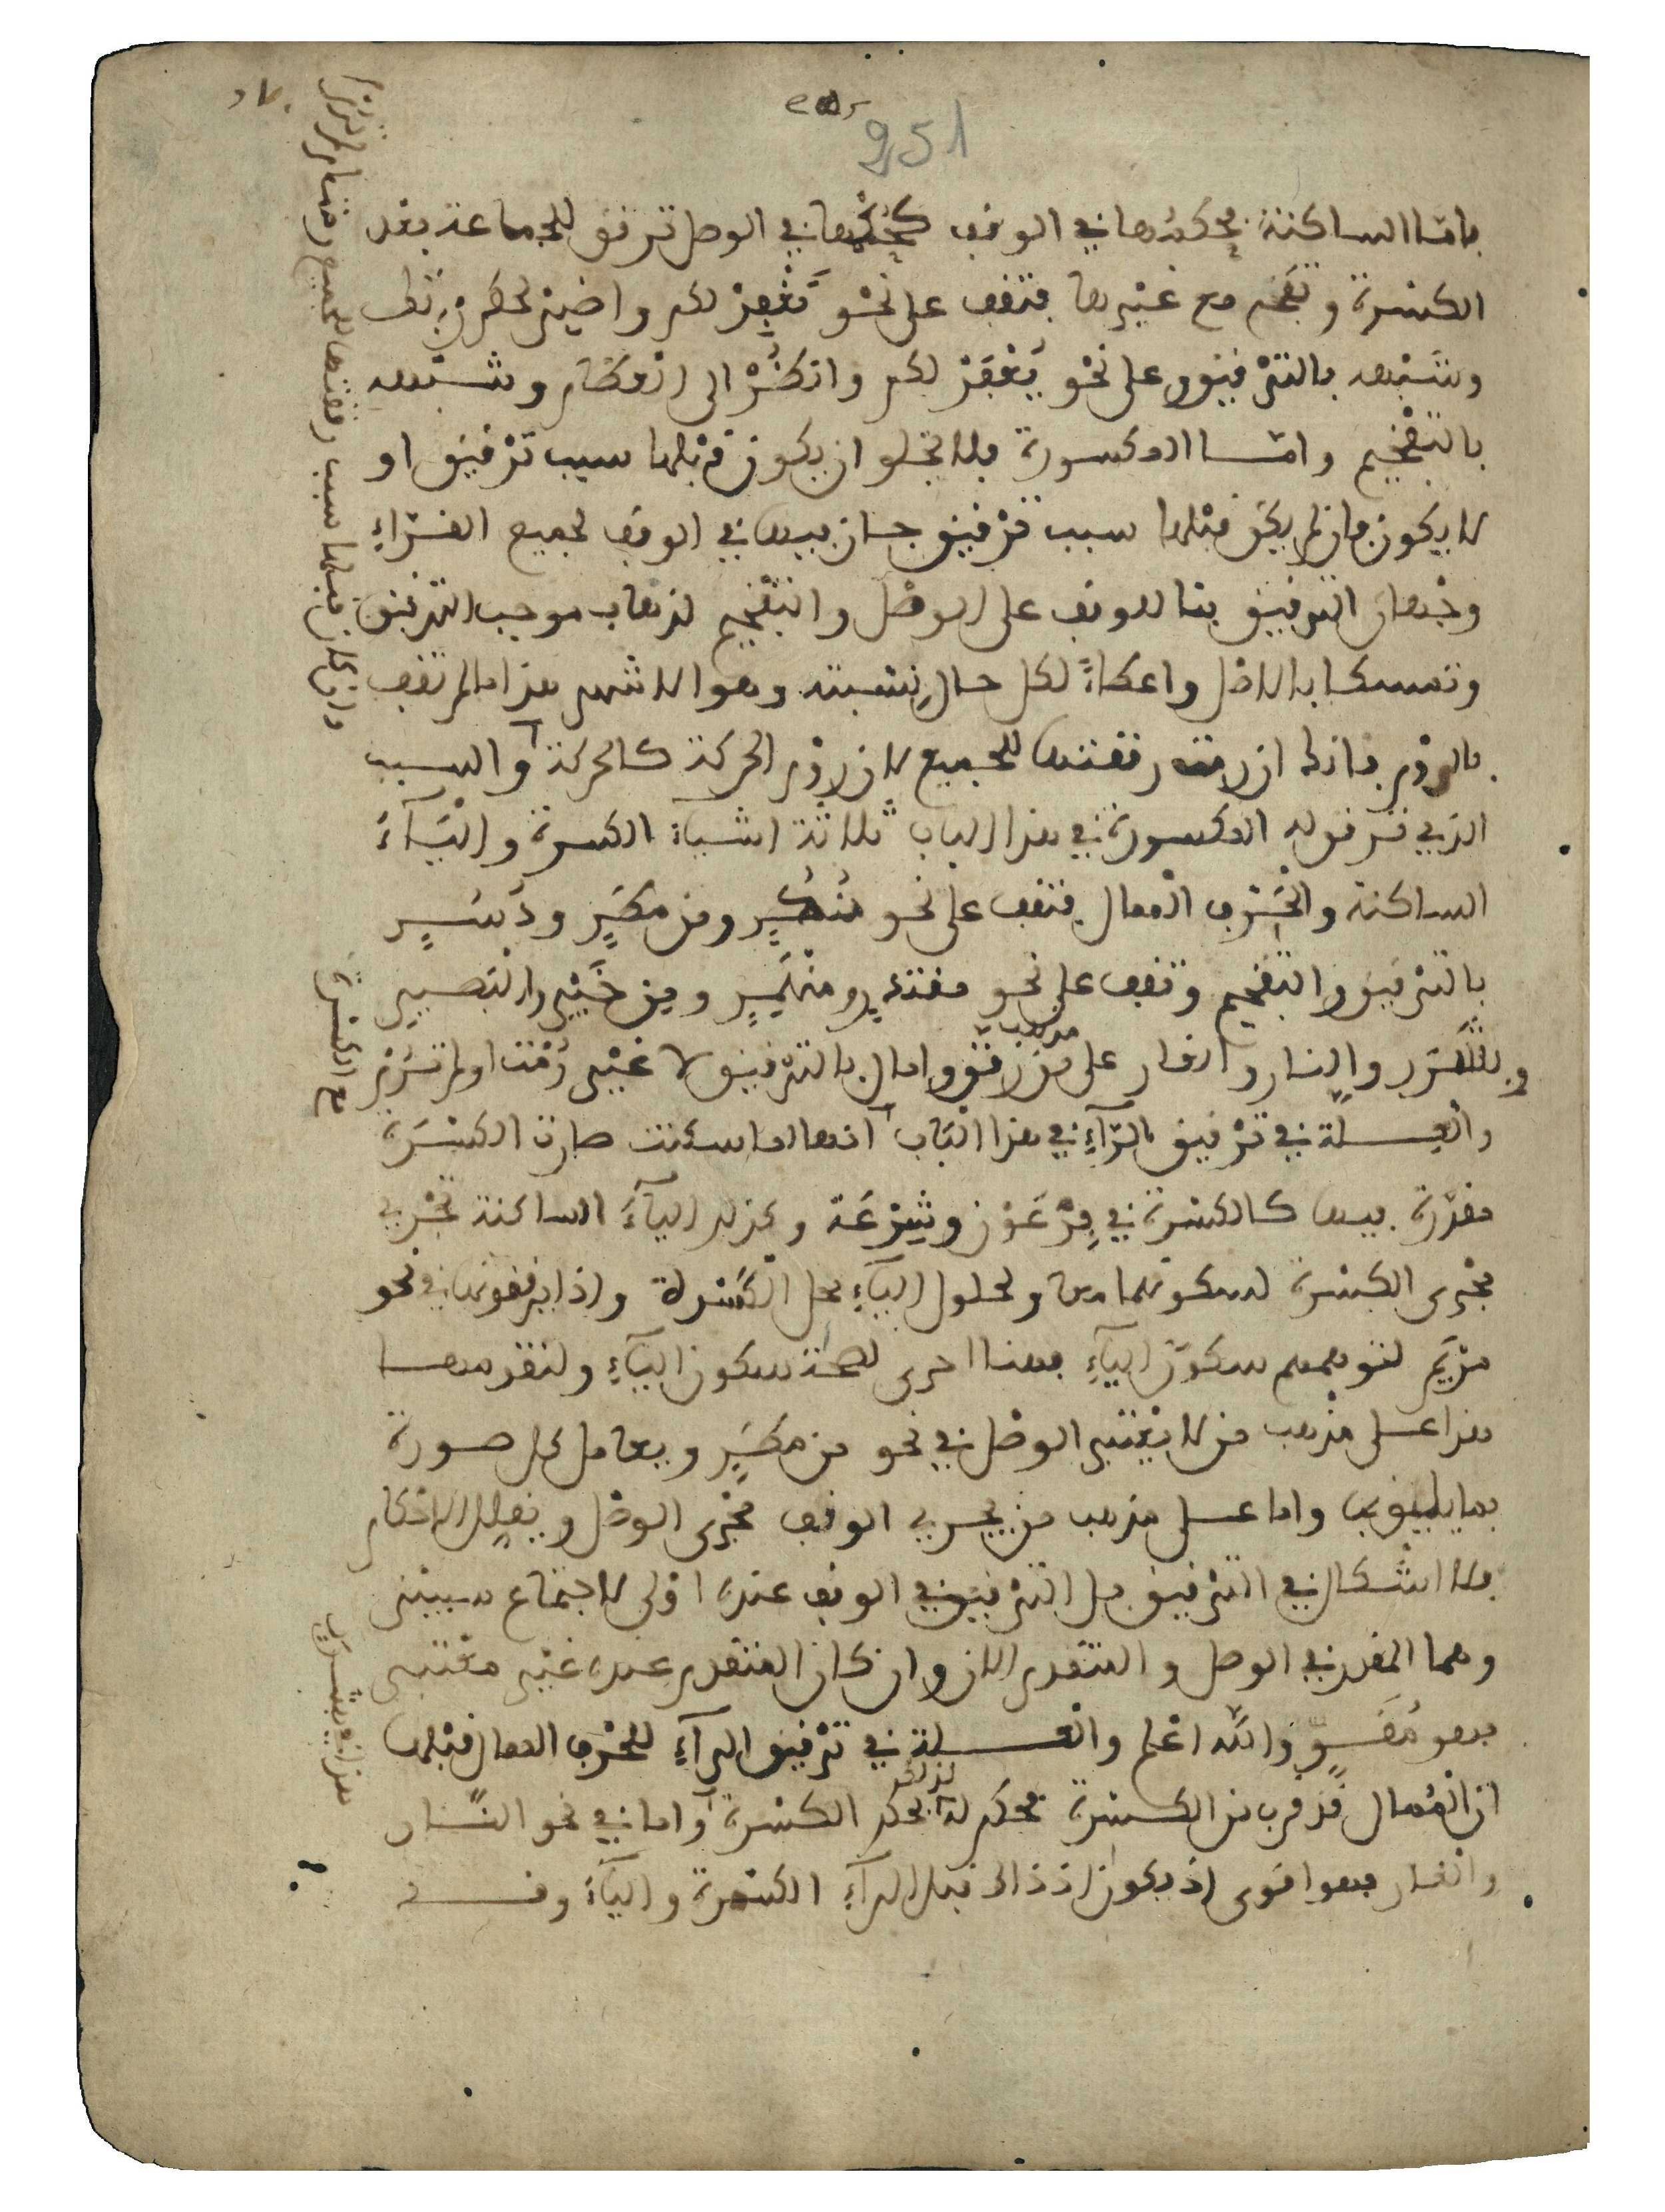 951
فاما الساكنة فحكمها في الوقف كحكمها في الوصل ترقق للجماعة بعد
الكسرة وتفخم مع غيرها فتقف على نحو نغفر لكم واصبر لحكم ربك
وشبهه بالترقيق وعلى نحو يغفر لكم وانظر الى
بالتفخيم واما المكسورة فلا تخلو ان يكون قبلها سبب ترقيق او
لا يكون فان لم يكن قبلها سبب ترقيق جاز فيها في الوقف لجميع القراء
وجهان الترقيق بنا للوقف على الوصل والتفخيم لذهاب موجب الترقيق
وتمسكا بالاصل واعطاءً لكل حال نسبته وهو الاشهر هذا ما لم تقف
بالروم فانك ان رمت رققتها للجميع لان روم الحركة كالحركة والسبب
الذي ترقق له المكسورة في هذا الباب ثلاثة اشياء الكسرة والياء
الساكنة والحرف الممال فتقف على نحو ومن مطر ودسر
بالترقيق والتفخيم وتقف على نحو مقتدر ومنهمر ومن خير والبصير
وبشرر والنار والغار على مذهب من رقق وامال بالترقيق لا غير رمت او لم ترم
والعلة في ترقيق الراء في هذا الباب انها لما سكنت صارت الكسرة
مقدرة فيها كالكسرة في فرعون وشرعة وكذلك الياء الساكنة تجري
مجرى الكسرة لسكونهما معا ولحلول الياء محل الكسرة واذا يرققونها في نحو
مريم لتوهم سكون الياء فهنا احرى لصحة سكون الياء ولتقدمها
هذا على مذهب من لا يعتبر الوصل في نحو من مطر ويعامل كل صورة
بما يليق بها واما على مذهب من يجري الوقف مجرى الوصل
فلا اشكال في الترقيق بل الترقيق في الوقف عنده اولى لاجتماع سببين
وهما المقدر في الوصل والمتقدم الان وان كان المتقدم عنده غير معتبر
فهو مقوٍّ والله اعلم والعلة في ترقيق الراء للحرف الممال قبلها
ان الممال قد قرب من الكسرة فحكم له لذلك بحكم الكسرة واما في نحو النار
والغار فهو اقوى اذ يكون اذ ذاك قبل الراء الكسرة والياء وقد
وان كان قبلها سبب رققتها للجميع رمت او لم ترم
مع الكسرة
هذا في بشرر